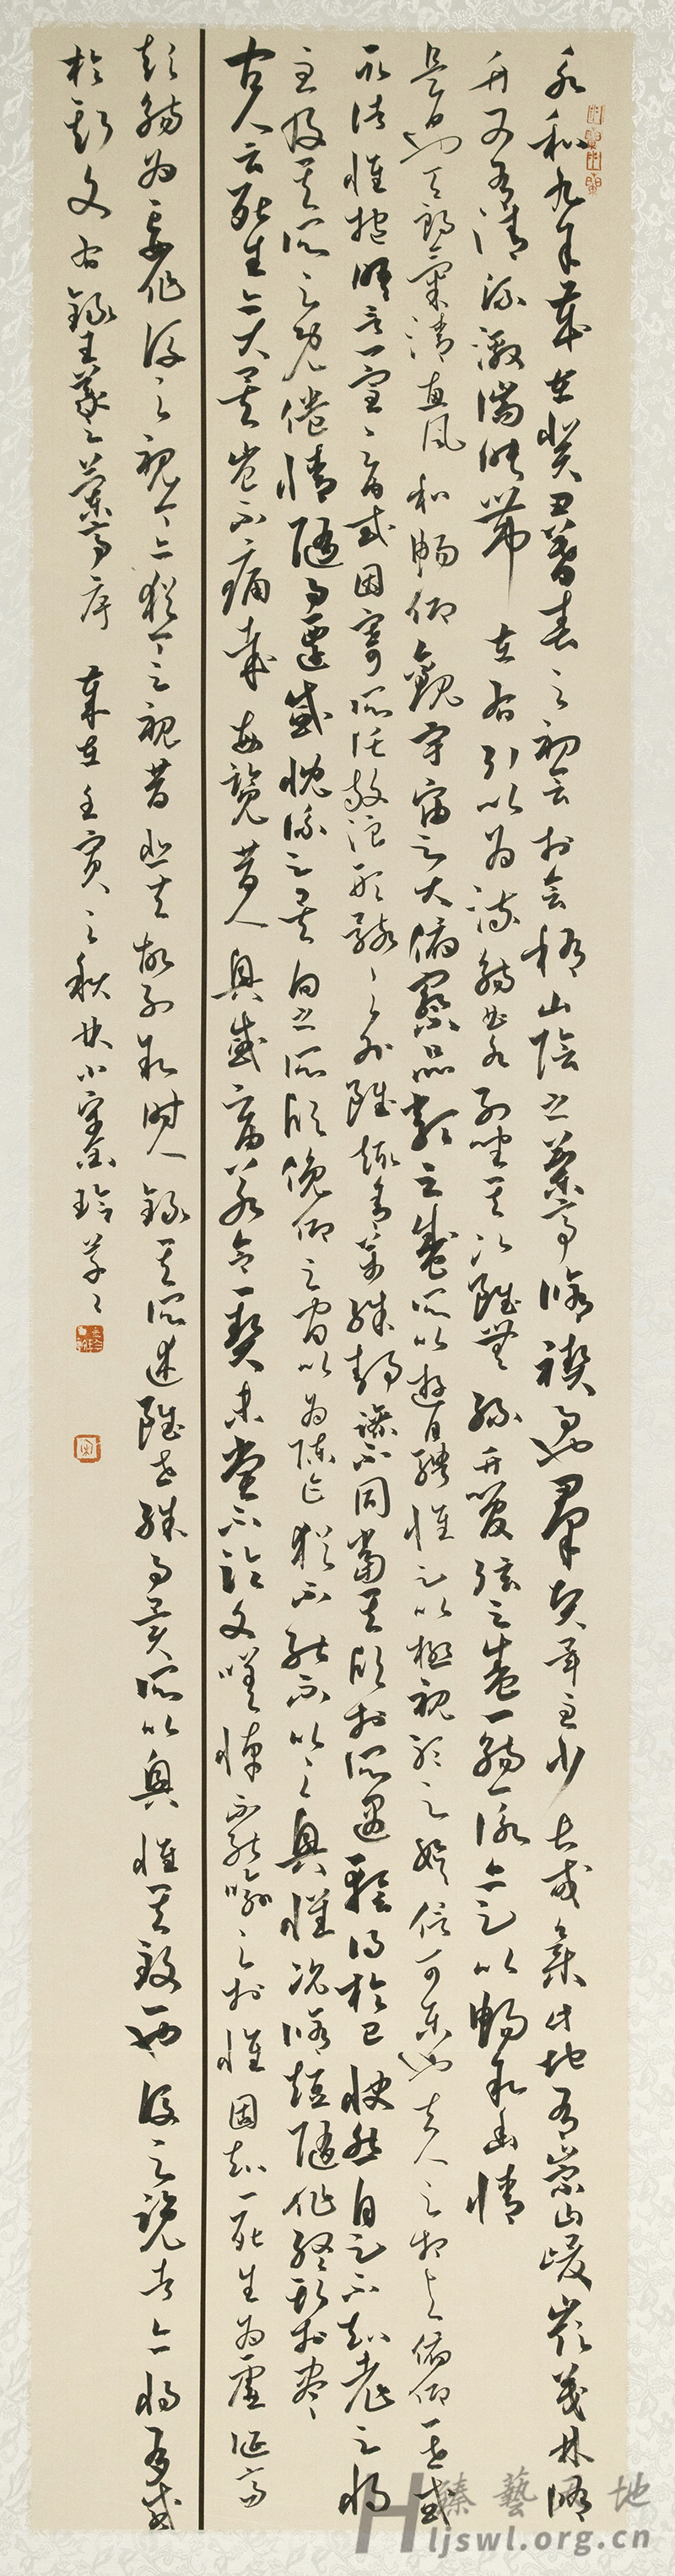 永和九年歲在癸丑暮春之初會于會稽山陰之蘭亭脩禊事也羣賢畢至少長咸集此地有崇山峻領茂林脩
竹又有清流激湍映帶左右引以為流觴曲水列坐其次雖無絲竹管弦之盛一觴一詠亦足以暢敘幽情
是日也天朗氣清惠風和暢仰觀宇宙之大俯察品類之盛所以遊目騁懷足以極視聽之娛信可樂也夫人之相與俯仰一世或
取諸懷抱晤言一室之內或因寄所託放浪形骸之外雖趣舍萬殊靜躁不同當其欣於所遇暫得於己快然自足不知老之將
至及其所之既倦情隨事遷感慨係之矣向之所欣俛仰之間以為陳迹猶不能不以之興懷況脩短隨化終期於盡
古人云死生亦大矣豈不痛哉每覽昔人興感之由若合一契未嘗不臨文嗟悼不能喻之於懷固知一死生為虛誕齊
彭殤為妄作後之視今亦猶今之視昔悲夫故列敘時人錄其所述雖世殊事異所以興懷其致一也後之覽者亦將有感
於斯文右錄王羲之蘭亭序 歲在壬寅之秋
ljswl.org.cn